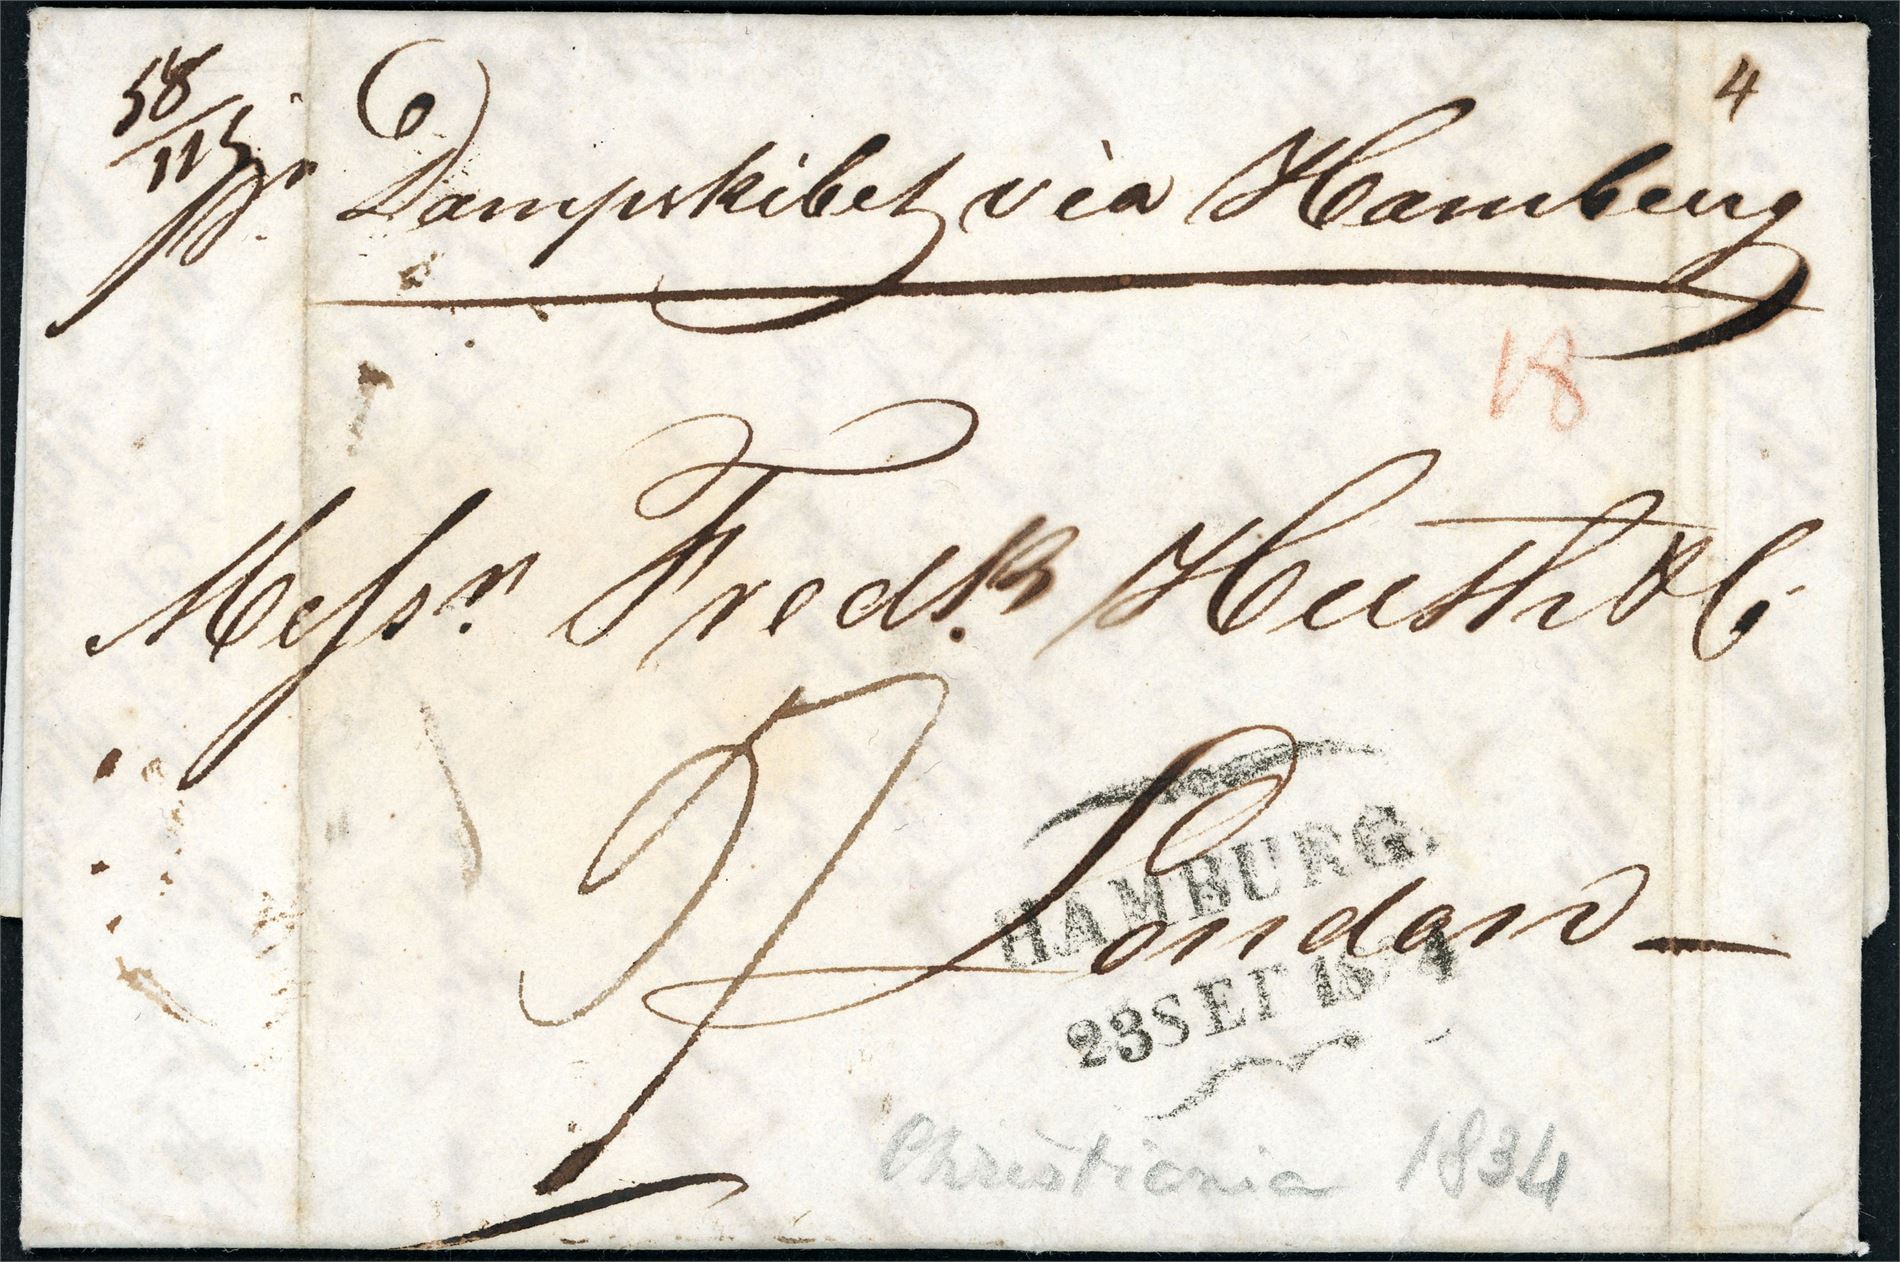 58
115
4
pr Dampskibet via Hamburg
18
Messrs Fredk. Huth & Co
London
HAMBURG.
23 SEP 1834
Christiania 1834